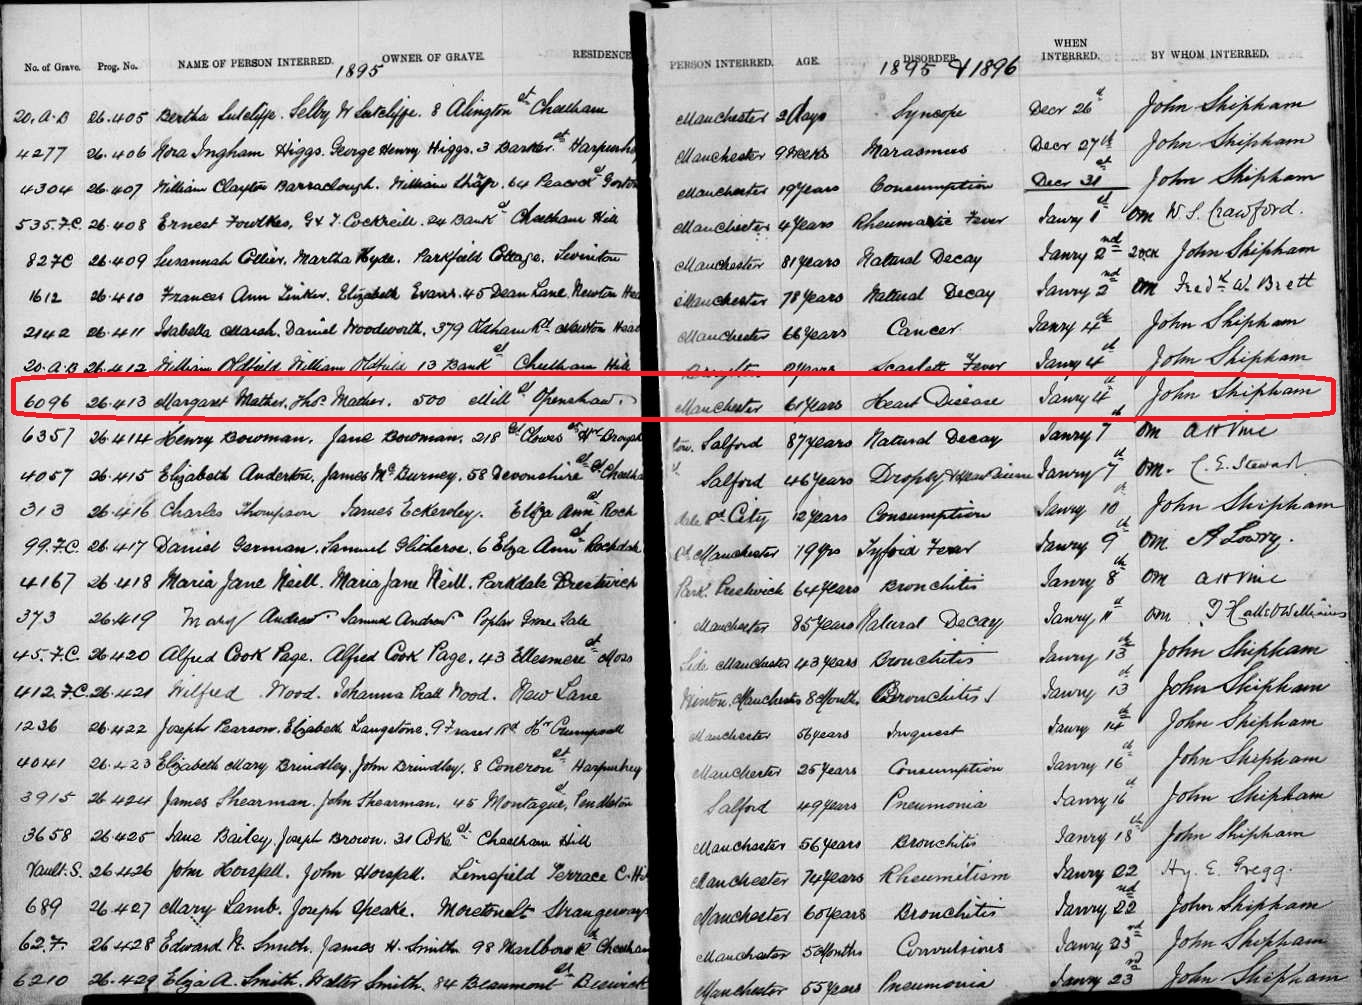 No. of Grave. Prog. No. NAME OF PERSON INTERRED. OWNER OF GRAVE. RESIDENCE PERSON INTERRED. AGE. DISORDER. WHEN INTERRED. BY WHOM INTERRED.
1895 1895 & 1896
20.A.B 26.405 Bertha Sutcliffe. Selby W Sutcliffe. 8 Alington St Cheetham Manchester 2 Days Syncope Decr 26th John Shipham
4277 26.406 Nora Ingham Higgs. George Henry Higgs. 3 Barker St Harpurhey Manchester 9 Weeks Marasmus Decr 27th John Shipham
4304 26.407 William Clayton Barraclough. William 64 Peacock St Gorton Manchester 19 Years Consumption Decr 31st John Shipham
535.F.C. 26.408 Ernest Fowlkes, G & T. Cockreill. 24 Bank St Cheetham Hill Manchester 4 Years Rheumatic Fever Janry 1st om W. S. Crawford.
82 F C 26.409 Susannah Collier. Martha Hyde. Parkfield Cottage. Levinston Manchester 81 Years Natural Decay Janry 2nd John Shipham
1612 26.410 Frances Ann Tinker. Elizabeth Evans. 45 Dean Lane. Newton Hea Manchester 78 Years Natural Decay Janry 2nd om Fredk W. Brett
2142 26.411 Isabella Marsh. Daniel Woodworth. 379 Oldham Rd Newton Heat Manchester 66 Years Cancer Janry 4th John Shipham
20.A.B 26.412 William Oldfield William Oldfield 13 Bank St Cheetham Hill Broughton Years Scarlett Fever Janry 4th John Shipham
6096 26.413 Margaret Mather. Thos. Mather. 500 Mill St Openshaw. Manchester 61 Years Heart Disease Janry 4th John Shipham
6357 26.414 Henry Bowman. Jane Bowman. 218 Gt Clowes St Hr Brough ton. Salford 87 Years Natural Decay Janry 7th om A H Vine
4057 26.415 Elizabeth Anderton. James McBurney. 58 Devonshire St Cheetha Salford 46 Years Dropsy & Heart Disease Janry 7th om. C. E. Stewart
313 26.416 Charles Thompson James Eckersley. Eliza Ann St Roch dale Rd City 12 Years Consumption Janry 10th John Shipham
99.F.C. 26.417 Daniel German. Samuel Glitheroe. 6 Eliza Ann St Rochdale Rd Manchester 19 Yrs Tyfoid Fever Janry 9th om A Lowry.
4167 26.418 Maria Jane Neill. Maria Jane Neill. Parkdale Prestwich Park. Prestwich 64 Years Bronchitis Janry 8th om A H Vine
373 26.419 Mary Andrew Samuel Andrew Poplar Grove Sale Manchester 85 Years Natural Decay Janry 11th om T Hallot Williams
45.F.C. 26.420 Alfred Cook Page. Alfred Cook Page. 43 Ellesmere St Moss Side Manchester 43 Years Bronchitis Janry 13th John Shipham
412.F.C. 26.421 Wilfred Wood. Johanna Pratt Wood. New Lane Winton. Manchester 8 Months Bronchitis Janry 13 John Shipham
1236 26.422 Joseph Pearson. Elizabeth Langstone. 9 Fraser Rd Hr Crumpsall Manchester 56 years Inquest Janry 14th John Shipham
4041 26.423 Elizabeth Mary Brindley. John Brindley. 8 Coneron St Harpurhey Manchester 25 Years Consumption Janry 16th John Shipham
3915 26.424 James Shearman. John Shearman. 45 Montague St Pendleton Salford 49 Years Pneumonia Janry 16th John Shipham
3658 26.425 Jane Bailey. Joseph Brown. 31 Coke St Cheetham Hill Manchester 56 Years Bronchitis Janry 18th John Shipham
Vault.S. 26.426 John Horsfall. John Horsfall. Limsfield Terrace C. Hill Manchester 74 Years Rheumitism Janry 22 Hy. E. Gregg.
689 26.427 Mary Lamb. Joseph Speake. Moreton St Strangeways Manchester 60 years Bronchitis Janry 22nd John Shipham
62.F. 26.428 Edward H. Smith. James H. Smith. 98 Marlboro Rd Cheetham Manchester 5 Months Convulsions Janry 23rd John Shipham
6210 26.429 Eliza A. Smith. Walter Smith. 84 Beaumont St Beswick Manchester 55 Years Pneumonia Janry 23rd John Shipham